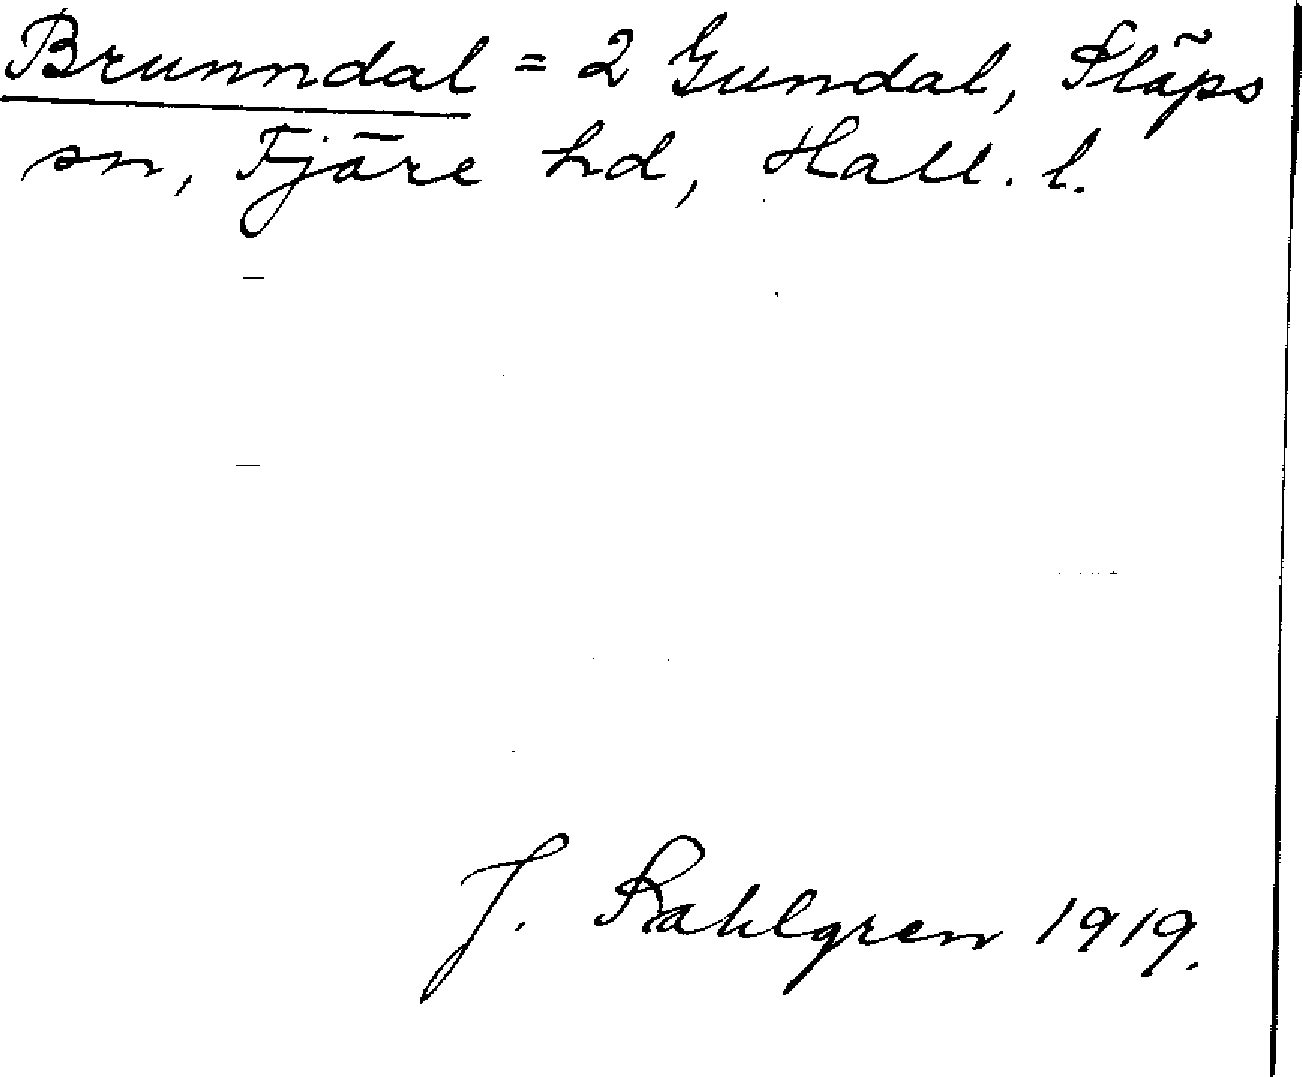 Brunndal = 2 Gundal, Släps
sn, Fjäre hd, Hall. l.
J. Sahlgren 1919.